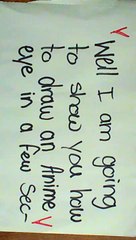 Well I am going
to show you how
to draw an Anime
eye in a few sec-